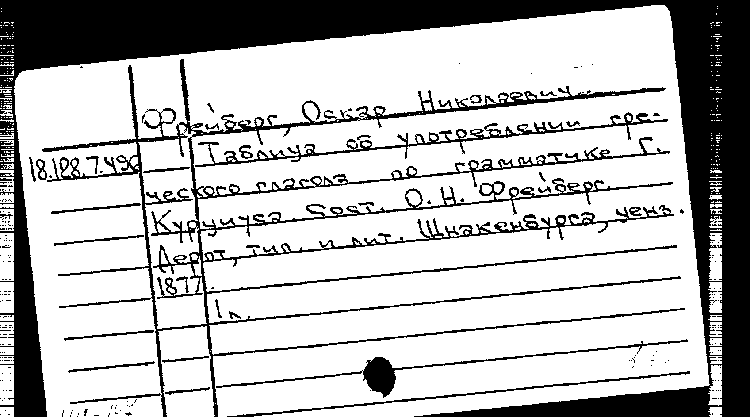 Фрейберг, Оскар Николаевич.
18.188.7.496
Таблица об употреблении гре-
ческого глагола по грамматике Г.
Курциуса. Sost. О. Н. Фрейберг.
Дерпт, тип. и лит. Шнакенбурга, ценз.
1877.
1 л.